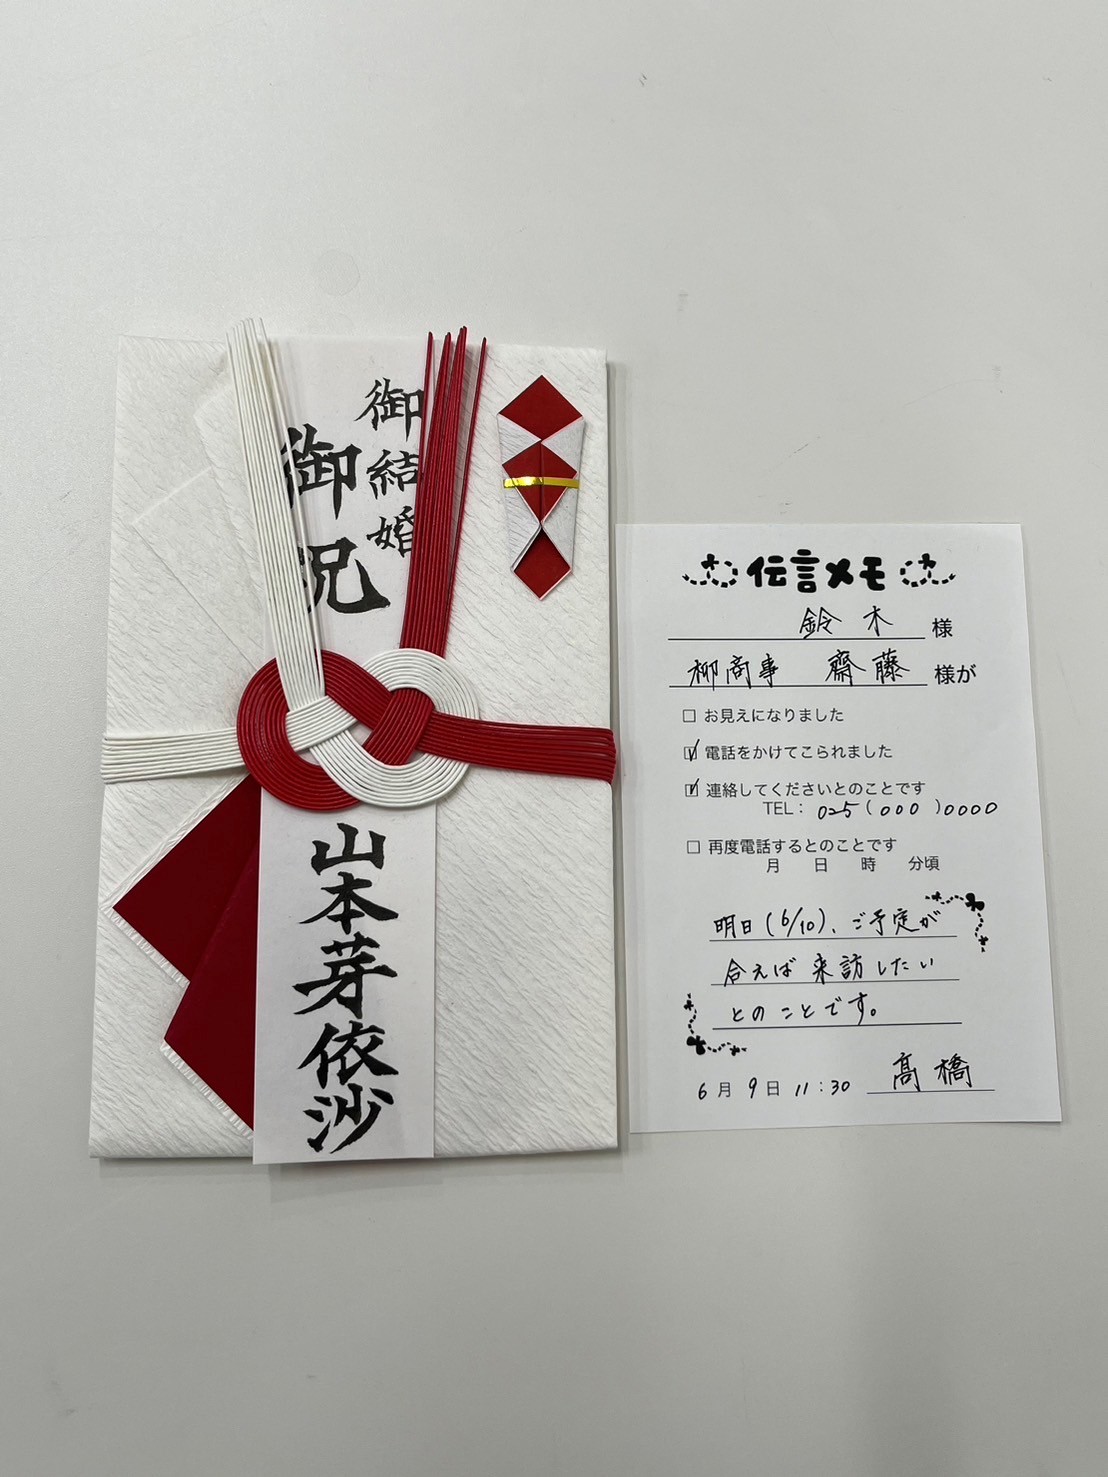 御結婚
御祝
山本芽依沙
伝言メモ
鈴木 様
柳商事 齋藤 様が
☐ お見えになりました
☑ 電話をかけてこられました
☑ 連絡してくださいとのことです
TEL: 025(000)0000
☐ 再度電話するとのことです
月 日 時 分頃
明日(6/10)、ご予定が
合えば来訪したい
とのことです。
6月9日 11:30 髙橋